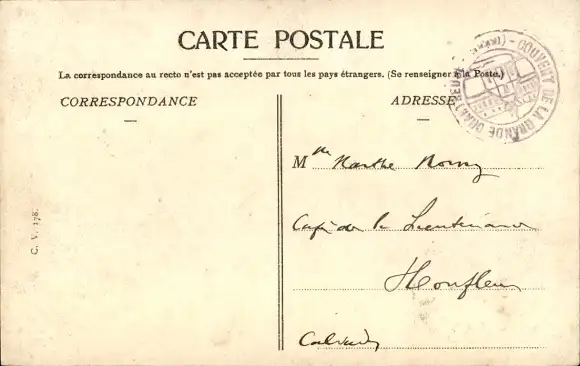 CARTE POSTALE
La correspondance au recto n'est pas acceptée par tous les pays étrangers. (Se renseigner à la Poste.)
CORRESPONDANCE
ADRESSE
GOUVERT DE LA GRANDE
M lle Marthe
Café de la Lieutenance
Honfleur
Calvados
C. V. 178.